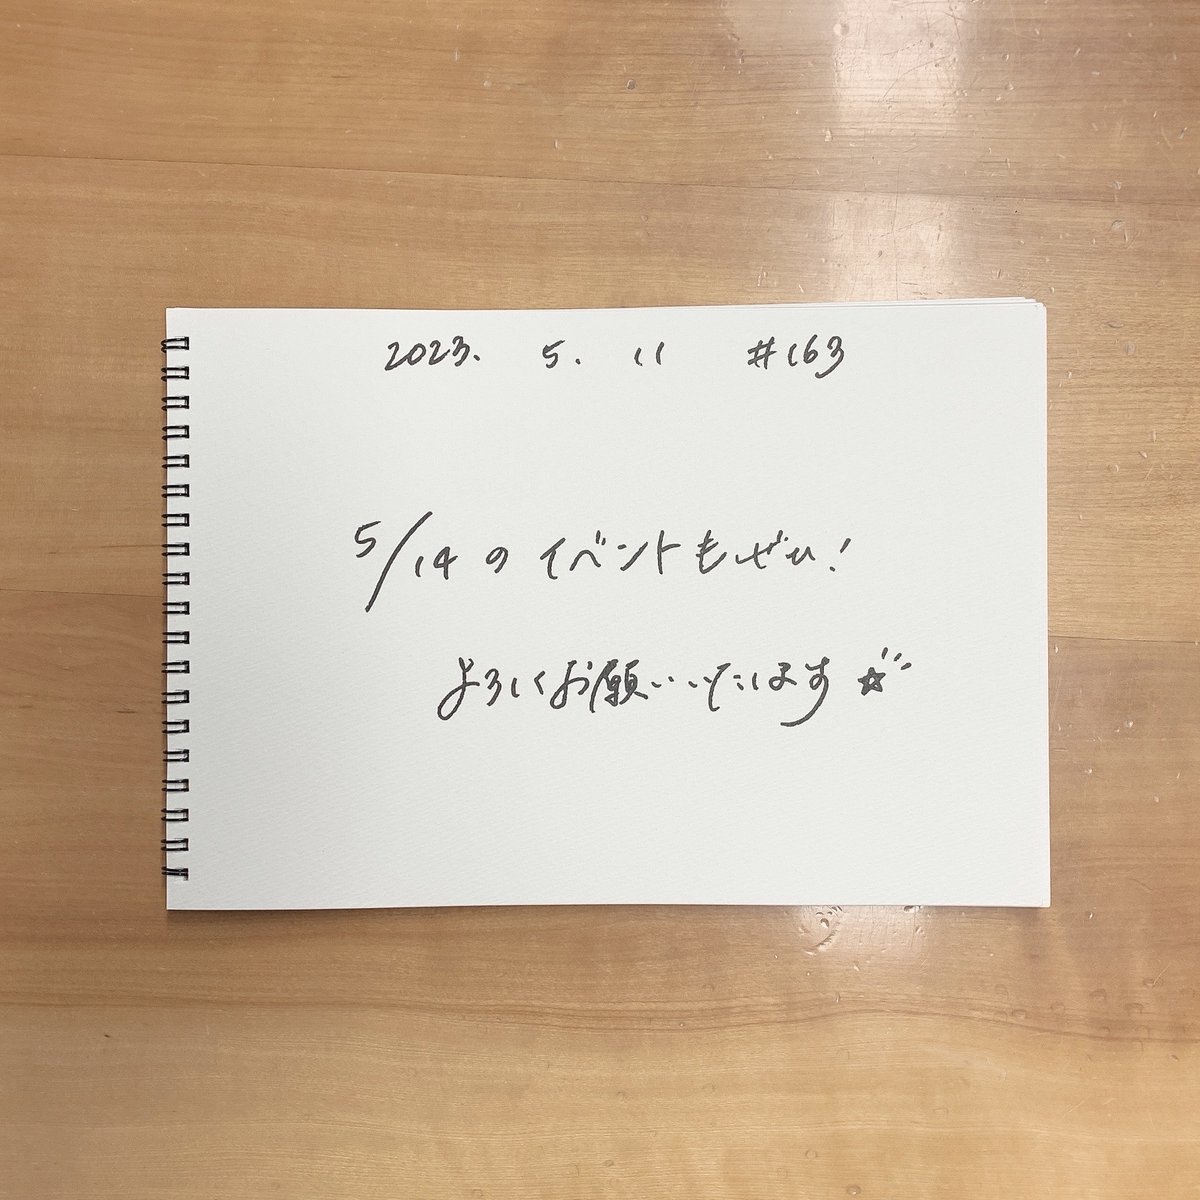 2023. 5. 11 #163
5/14のイベントもぜひ!
よろしくお願いいたします☆